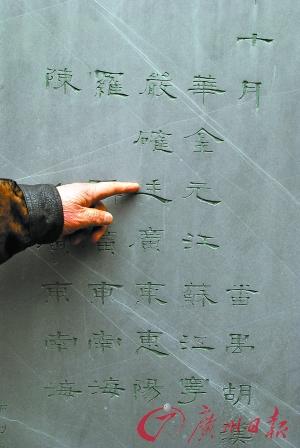 十月 番禺胡漢
華金元江蘇江寧
嚴確廣東惠陽
羅廣東南海
陳廣東南海
廣州日报